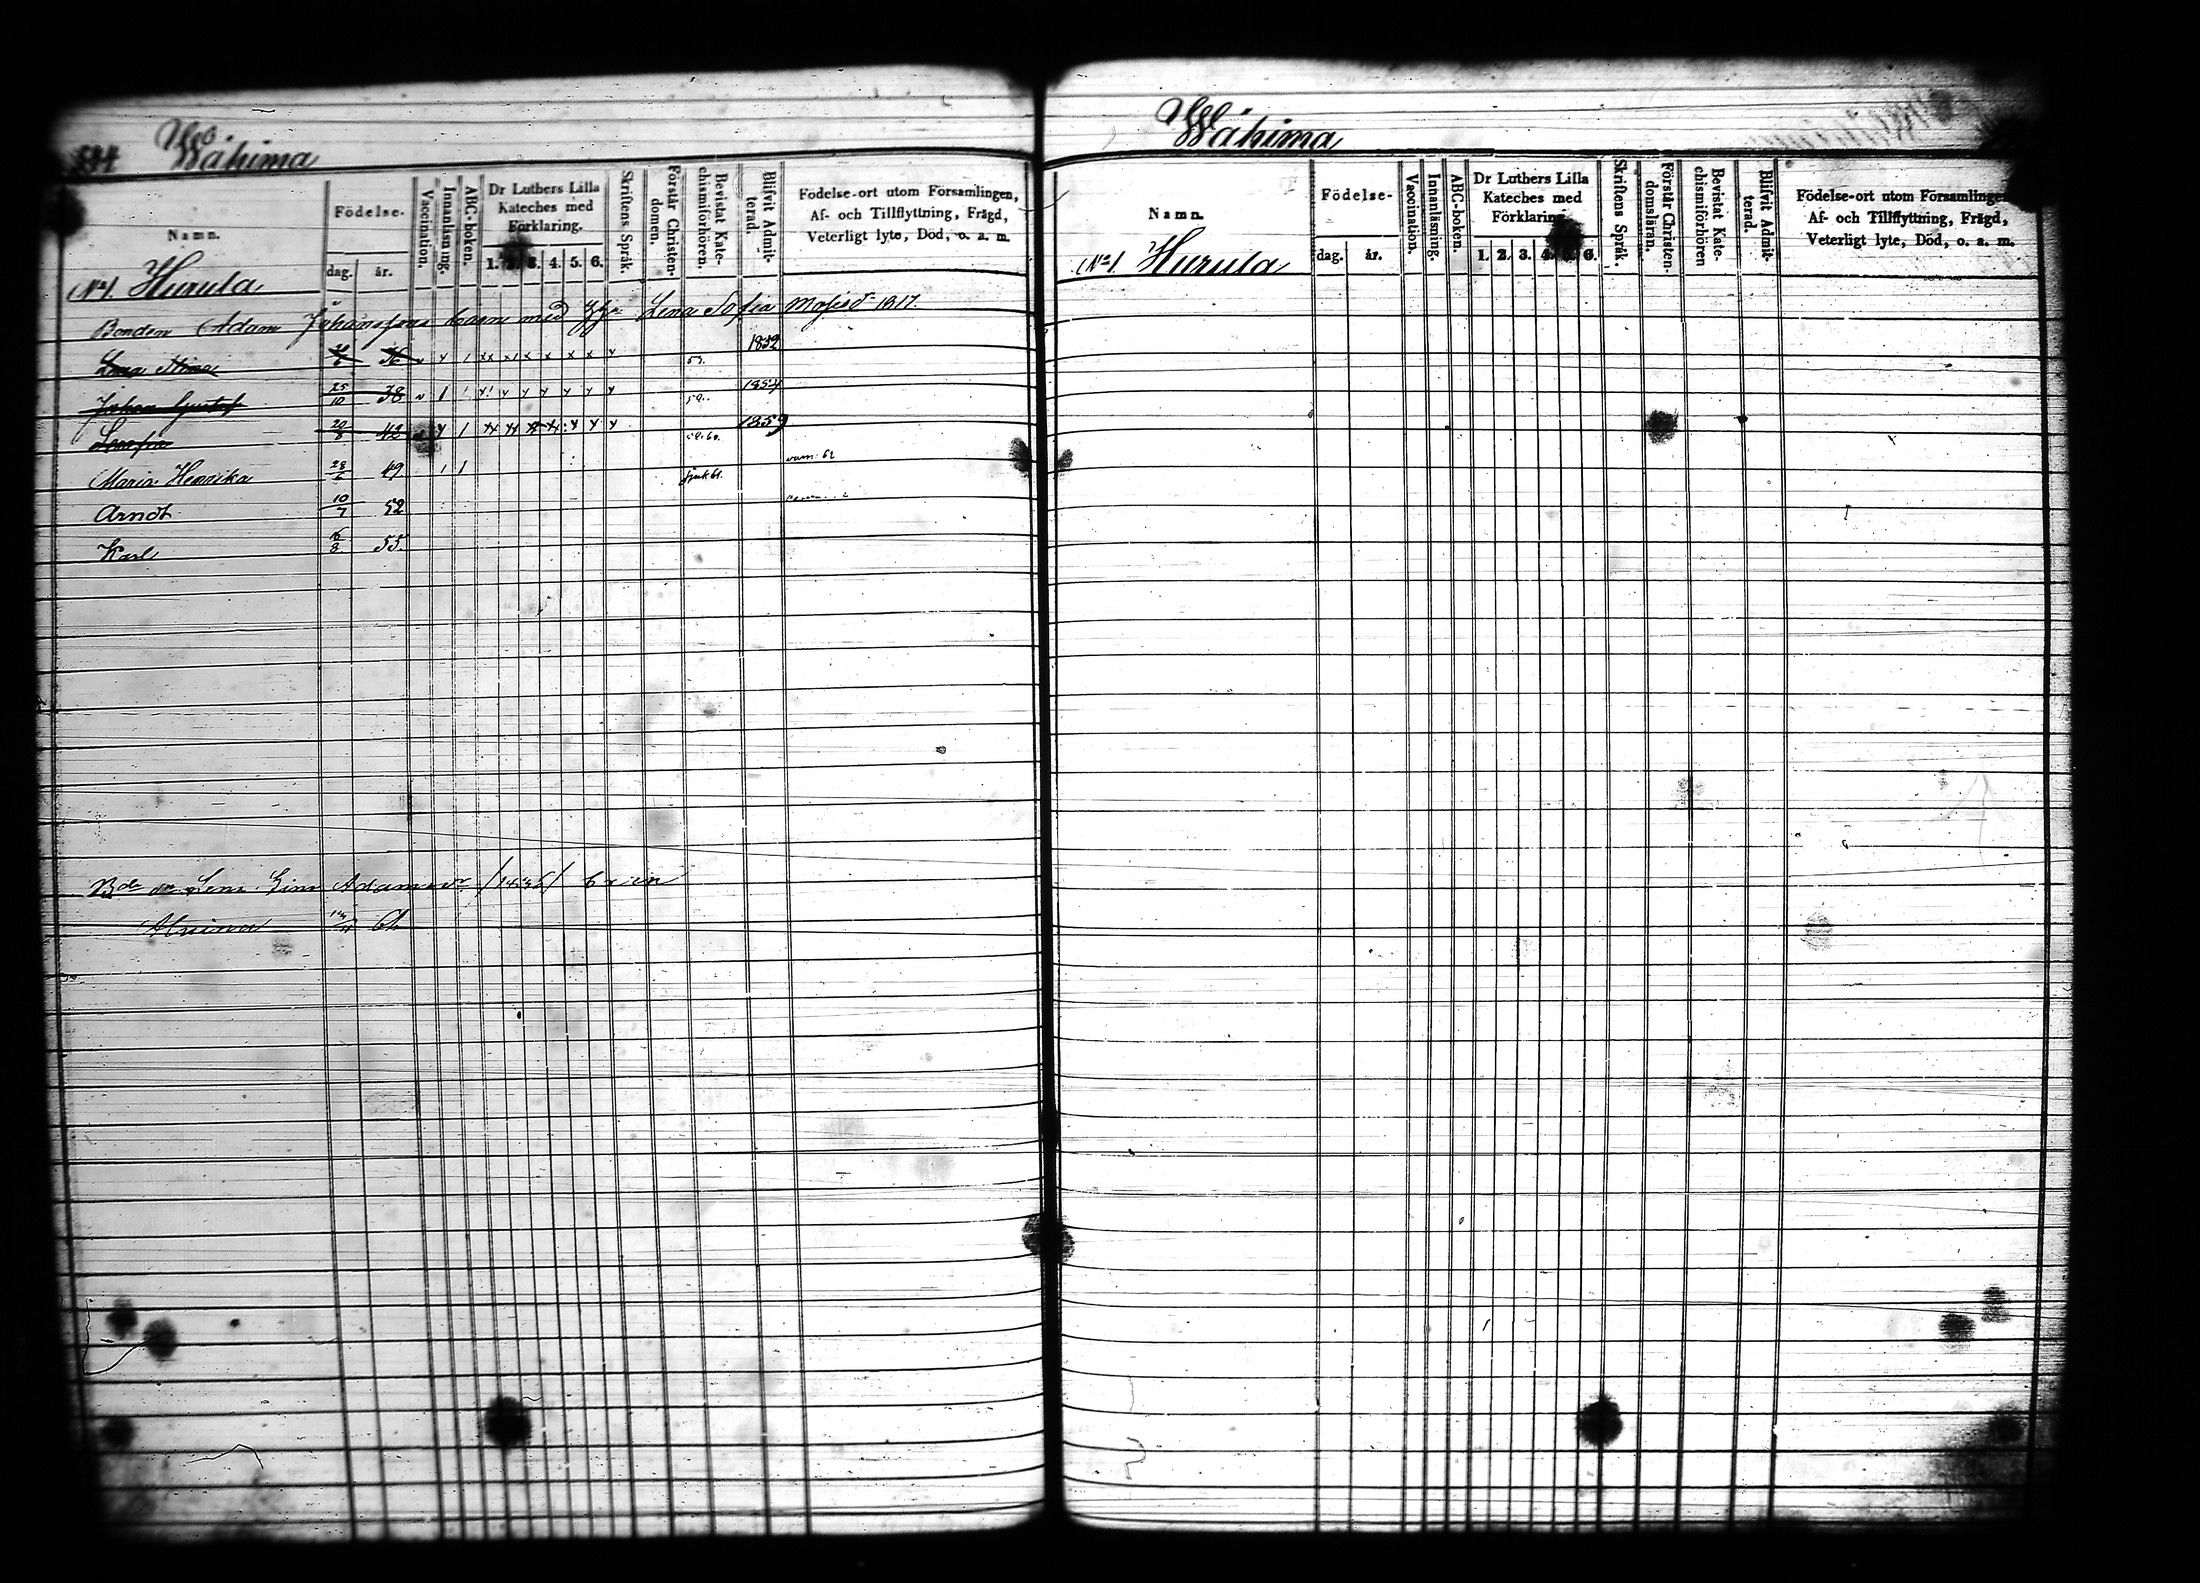 Wähima
Namn.
Födelse-
dag. år.
Vaccination.
Innanläsning.
ABC-boken.
Dr Luthers Lilla
Kateches med
Förklaring.
1. 3. 4. 5. 6.
Skriftens Språk.
Förstår Christen-
domen.
Bevistat Kate-
chismiförhören.
Blifvit Admit-
terad.
Födelse-ort utom Församlingen,
Af- och Tillflyttning, Frägd,
Veterligt lyte, Död, o. a. m.
No 1. Hurula
Bonden Adam Johanssons barn med Lena Sofia 1817.
Lena Stina 36 1852
Johan Gustaf 25/10 38 1854
Serafia 20/8 42 1859
Maria Henrika 28/6 49
Arndt 10/7 52
Karl 6/8 55.
Lena
Wähima
Namn.
Födelse-
dag. år.
Vaccination.
Innanläsning.
ABC-boken.
Dr Luthers Lilla
Kateches med
Förklaring
1. 2. 3. 4. 6.
Skriftens Språk.
Förstår Christen-
domsläran.
Bevistat Kate-
chismiförhören
Blifvit Admit-
terad.
Födelse-ort utom Församlingen
Af- och Tillflyttning, Frägd,
Veterligt lyte, Död, o. a. m.
No 1. Hurula